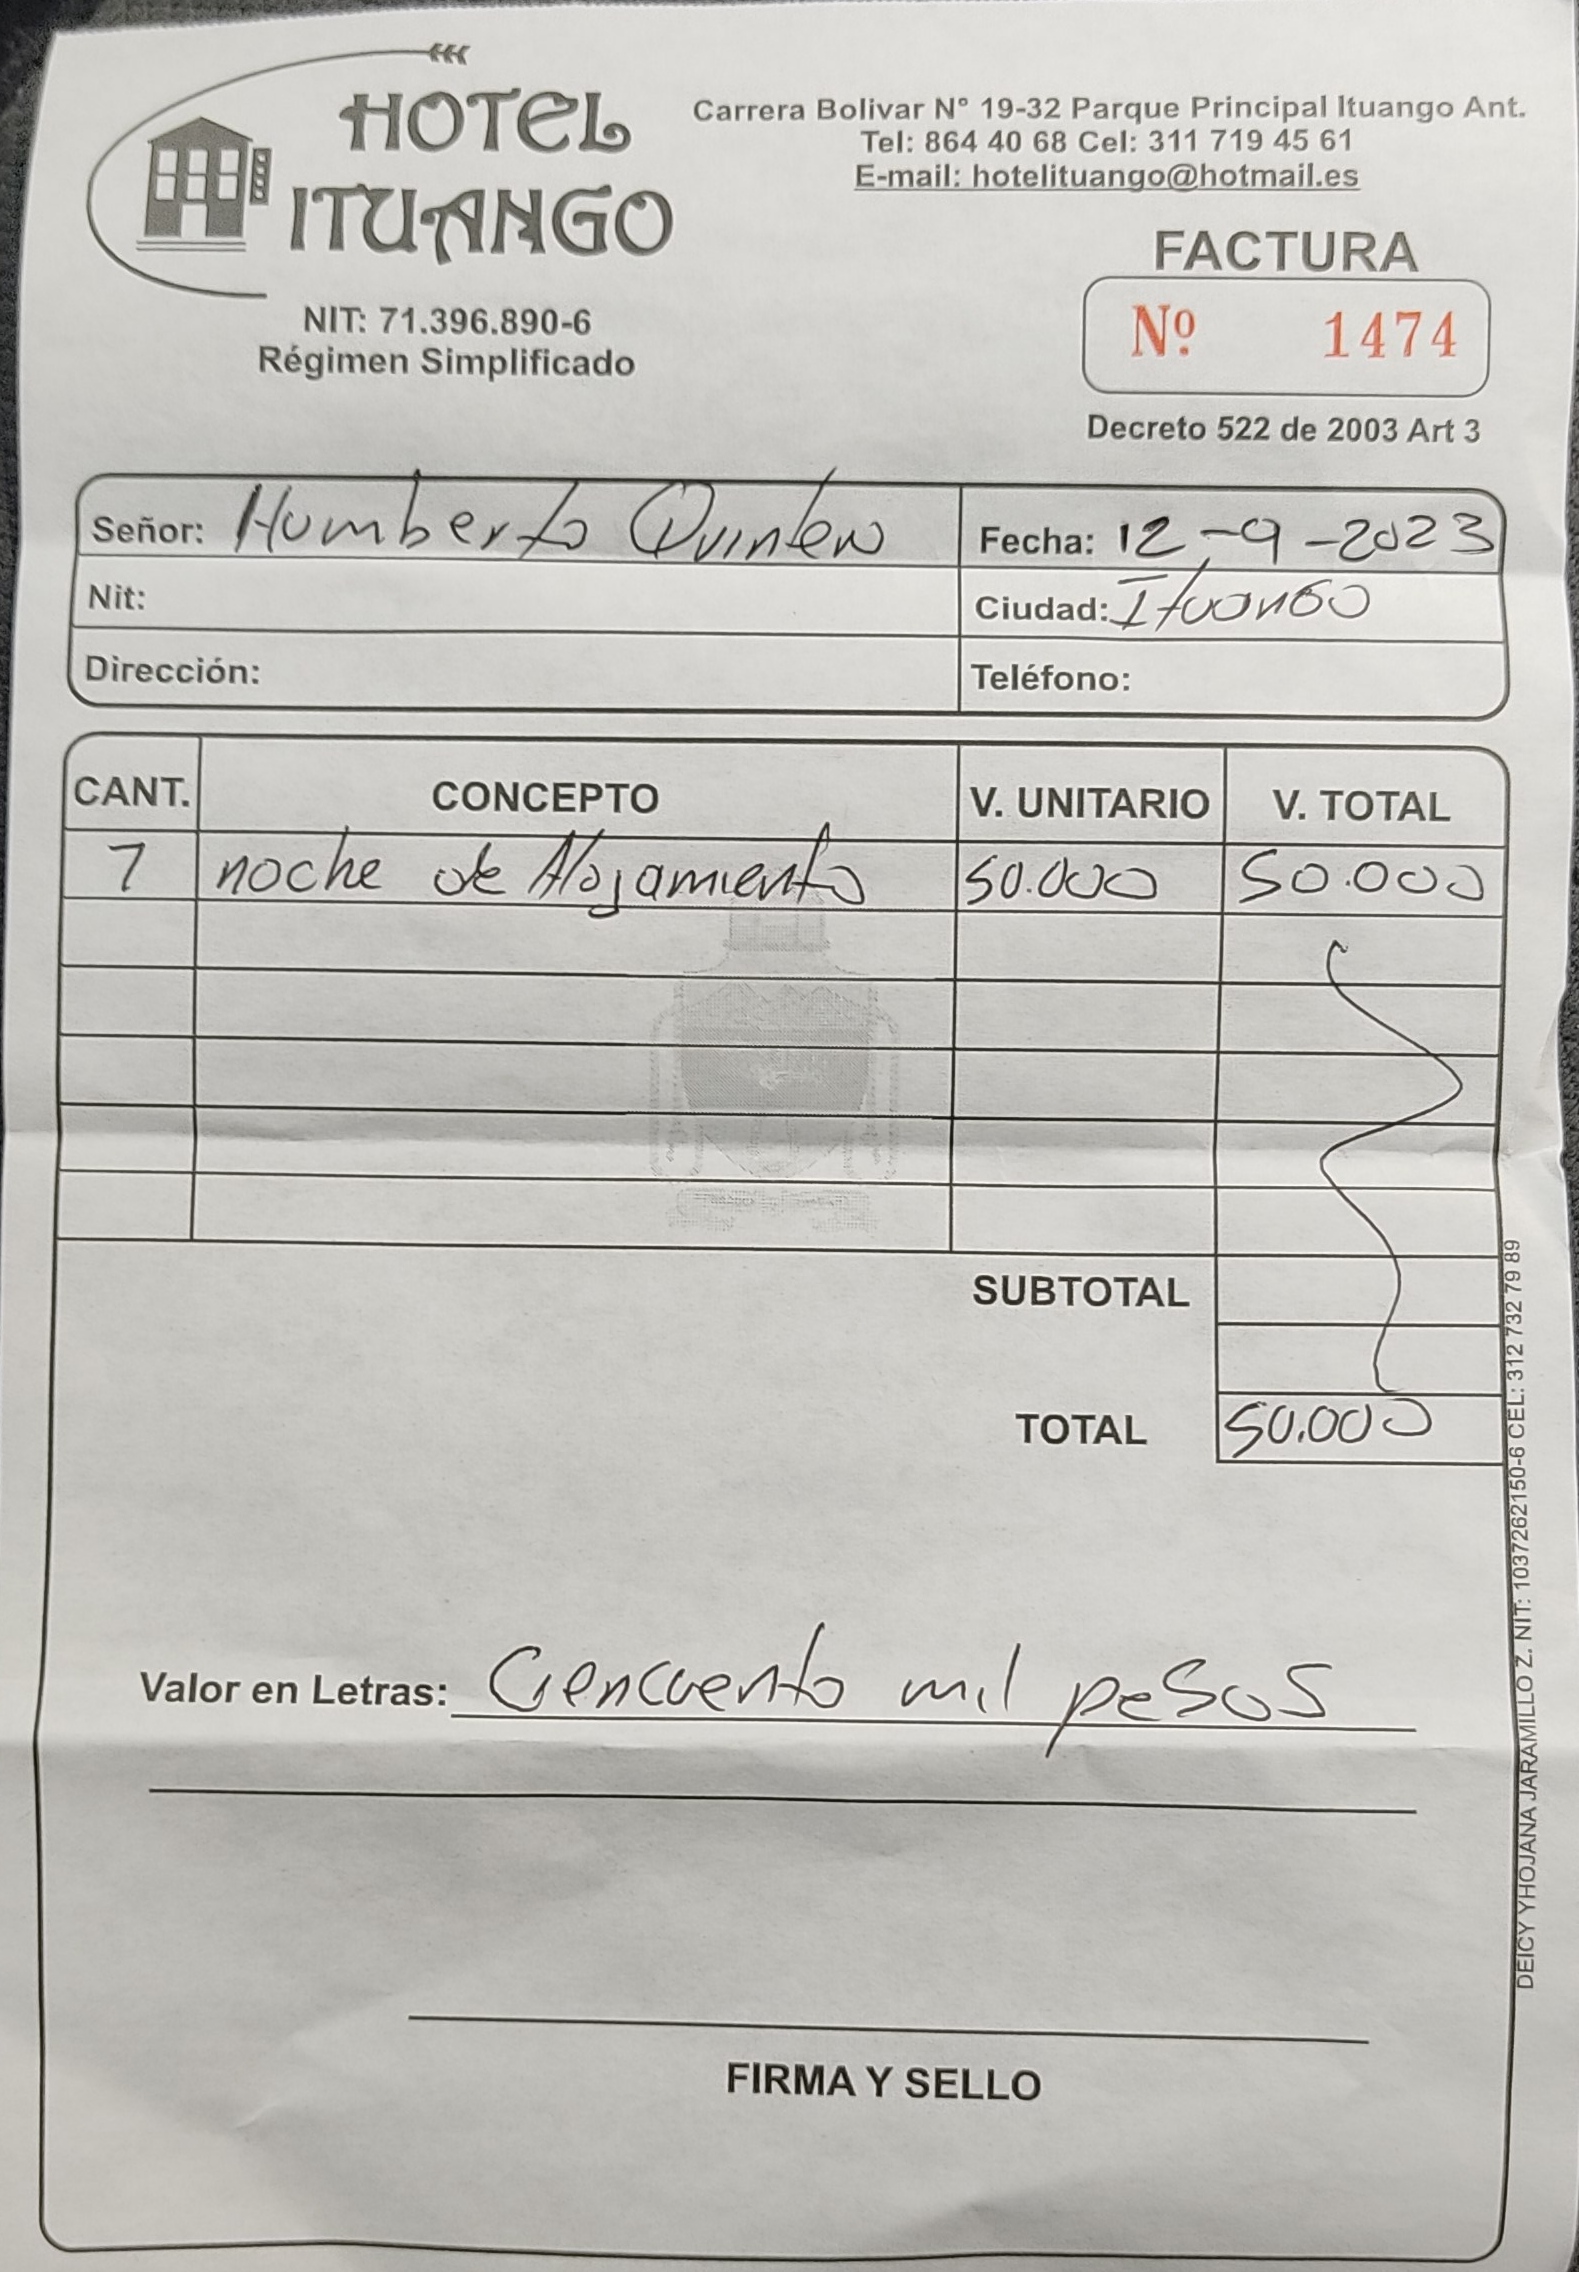 HOTEL
ITUANGO
NIT: 71.396.890-6
Régimen Simplificado
Carrera Bolivar N° 19-32 Parque Principal Ituango Ant.
Tel: 864 40 68 Cel: 311 719 45 61
E-mail: hotelituango@hotmail.es
FACTURA
Nº 1474
Decreto 522 de 2003 Art 3
Señor: Humberto Fecha: 12-9-2023
Nit: Ciudad: Ituango
Dirección: Teléfono:
CANT. CONCEPTO V. UNITARIO V. TOTAL
1 noche de Alojamiento 50.000 50.000
SUBTOTAL
TOTAL 50.000
Valor en Letras: Ciencuento mil pesos
FIRMA Y SELLO
DEICY YHOJANA JARAMILLO Z. NIT: 1037262150-6 CEL: 312 732 79 89